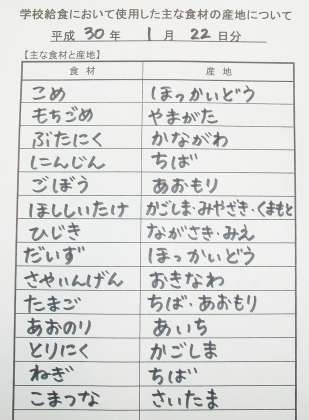 学校給食において使用した主な食材の産地について
平成 30 年 1 月 22 日分
【主な食材と産地】
食材 産地
こめ ほっかいどう
もちごめ やまがた
ぶたにく かながわ
にんじん ちば
ごぼう あおもり
ほししいたけ かごしま・みやざき・くまもと
ひじき ながさき・みえ
だいず ほっかいどう
さやいんげん おきなわ
たまご ちば・あおもり
あおのり あいち
とりにく かごしま
ねぎ ちば
こまつな さいたま